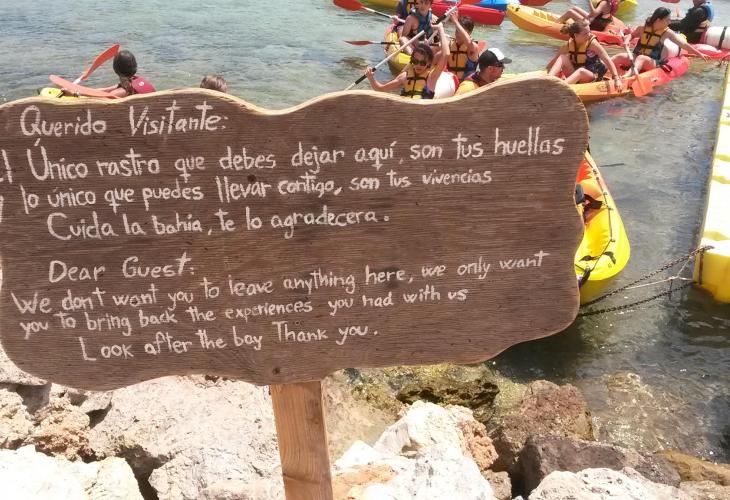 Querido Visitante:
El Único rastro que debes dejar aquí, son tus huellas
y lo único que puedes llevar contigo, son tus vivencias
Cuida la bahía, te lo agradecera.
Dear Guest:
We don't want you to leave anything here, we only want
you to bring back the experiences you had with us
Look after the bay Thank you.